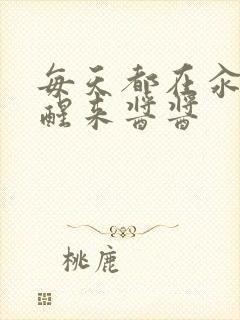 每天都在汆
醒来酱酱
桃鹿